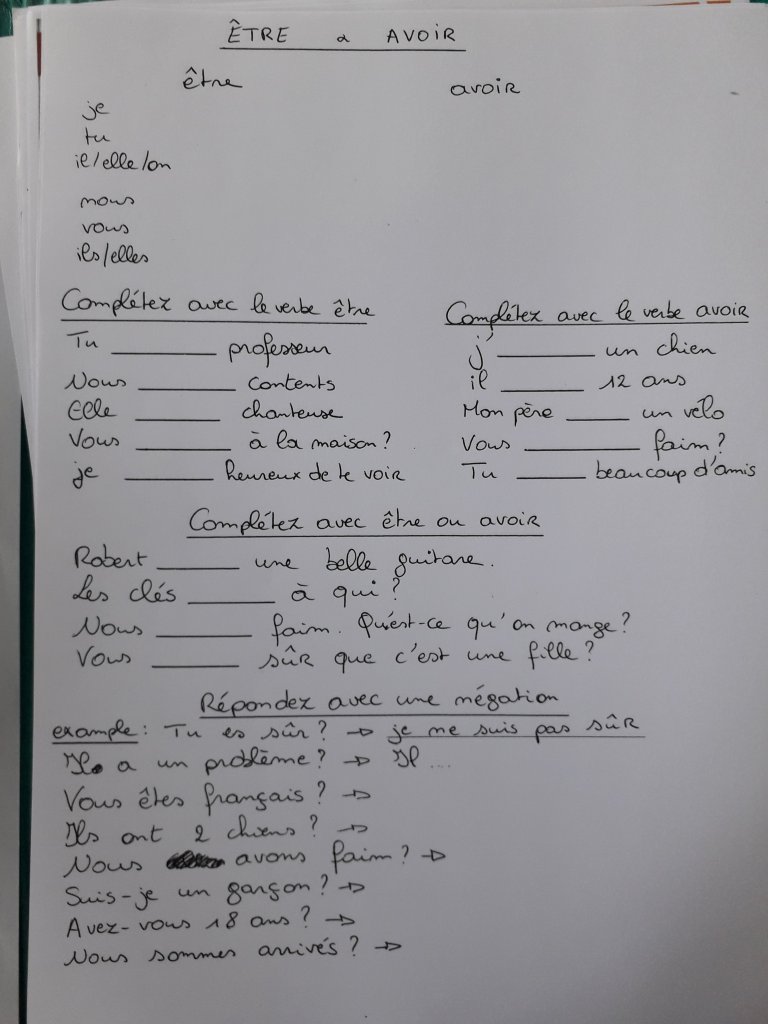 ÊTRE & AVOIR
être avoir
je
tu
il/elle/on
nous
vous
ils/elles
Complétez avec le verbe être
Tu ______ professeur
Nous ______ contents
Elle ______ chanteuse
Vous ______ à la maison ?
je ______ heureux de te voir
Complétez avec le verbe avoir
j' ______ un chien
il ______ 12 ans
Mon père ______ un vélo
Vous ______ faim ?
Tu ______ beaucoup d'amis
Complétez avec être ou avoir
Robert ______ une belle guitare.
Les clés ______ à qui ?
Nous ______ faim. Qu'est-ce qu'on mange ?
Vous ______ sûr que c'est une fille ?
Répondez avec une négation
example : Tu es sûr ? → je ne suis pas sûr
Il a un problème ? → Il ...
Vous êtes français ? →
Ils ont 2 chiens ? →
Nous avons faim ? →
Suis-je un garçon ? →
Avez-vous 18 ans ? →
Nous sommes arrivés ? →